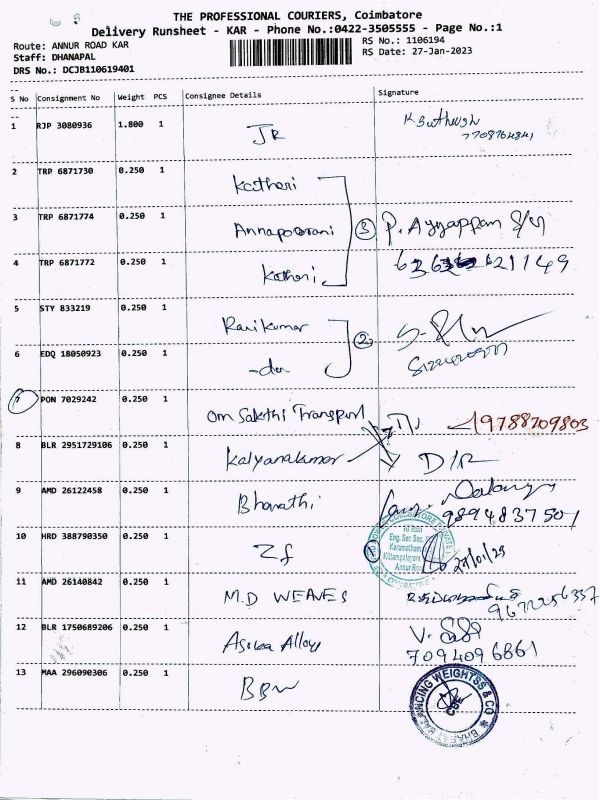 THE PROFESSIONAL COURIERS, Coimbatore
Delivery Runsheet - KAR - Phone No.:0422-3505555 - Page No.:1
Route: ANNUR ROAD KAR
RS No.: 1106194
Staff: DHANAPAL
RS Date: 27-Jan-2023
DRS No.: DCJB110619401
S No Consignment No Weight PCS Consignee Details Signature
1 RJP 3080936 1.800 1 JR
7708764841
2 TRP 6871730 0.250 1 Kathori
3 TRP 6871774 0.250 1 Annapoorani 3 P. Ayyappan
4 TRP 6871772 0.250 1 Kathori
5 STY 833219 0.250 1 Ravikumar
2
6 EDQ 18050923 0.250 1 -do-
7 PON 7029242 0.250 1 Om Sakthi Transport 9788709803
8 BLR 2951729106 0.250 1 Kalyanakumar D/R
9 AMD 26122458 0.250 1 Bharathi
9894837501
10 HRD 388790350 0.250 1 Zf 27/01/23
Eng. Ser. Sec.
Annur Road
11 AMD 26140842 0.250 1 M.D WEAVES
9672256357
12 BLR 1750689206 0.250 1 Asika Alloys V.
7094096861
13 MAA 296090306 0.250 1 BBW
BHARAT BALANCING WEIGHTSS & CO
CBE